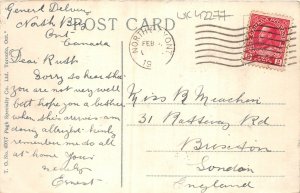 General Delivery
North Bay
Ont
Canada
POST CARD
UK42277
NORTH BAY ONT
FEB
19
Dear Ruth
Sorry to hear that
you are not very well
but hope you a better
when this arrives am
doing allright. kindly
remember me do all
at home Your
Ernest
Miss B Meachen
31 Rattray Rd
Brixton
London
England
T. O. No. 6507 Pugh Specialty Co. Ltd. Toronto, Ont.